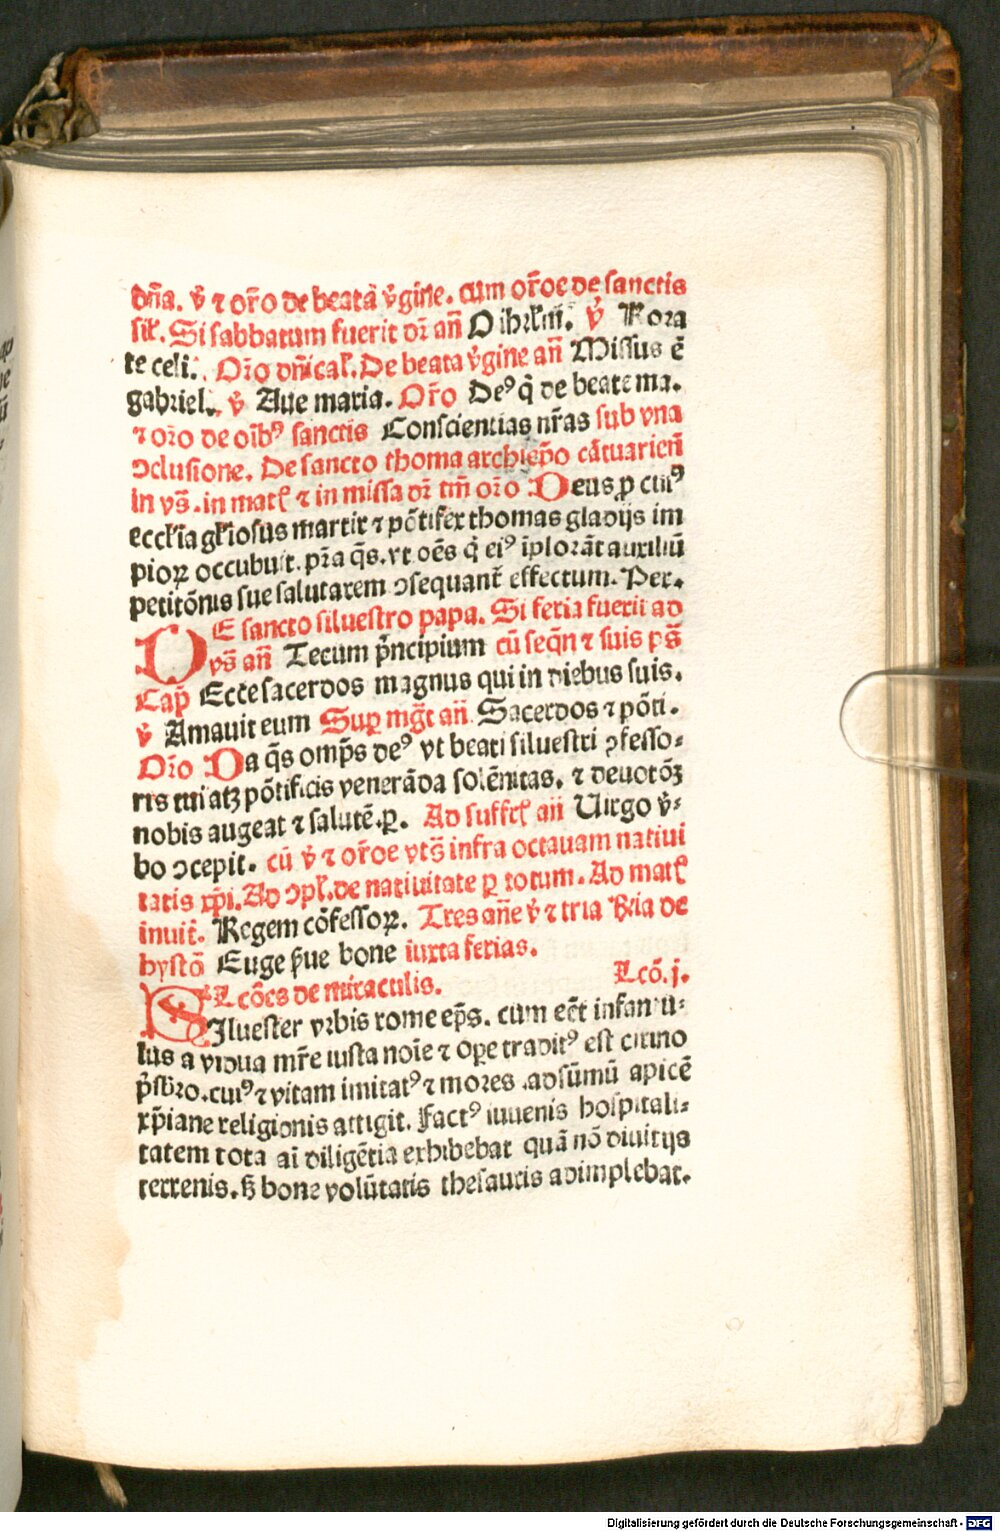 dn̄a. v̄ ⁊ or̄o de beata v̄gine. cum or̄oe de sanctis
sil̄. Si sabbatum fuerit dr̄ an̄ O ihrl̄m̄. v̄ Rora
te celi. Or̄o dn̄ical̄. De beata v̄gine an̄ Missus ē
gabriel. v̄ Aue maria. Or̄o Deꝰ q̄ de beate ma.
⁊ or̄o de oib̄ꝰ sanctis Conscientias nr̄as sub vna
ↄclusione. De sancto thoma archiep̄o cātuarien̄
in vs̄. in mat̄ ⁊ in missa dr̄ tm̄ or̄o Deus ꝓ cuiꝰ
eccl̄ia gl̄iosus martir ⁊ pōtifex thomas gladijs im
pioꝝ occubuit. pr̄a q̄s. vt oēs q̄ eiꝰ īplorāt auxiliū
petitōnis sue salutarem ↄsequant̄ effectum. Per.
DE sancto siluestro papa. Si feria fuerit ad
vs̄ an̄ Tecum pr̄ncipium cū seqn̄ ⁊ suis ps̄
Cap̄ Ecce sacerdos magnus qui in diebus suis.
v̄ Amauit eum Suꝑ mḡt an̄. Sacerdos ⁊ pōti.
Or̄o Da q̄s omp̄s deꝰ vt beati siluestri ↄfesso⸗
ris tui atꝫ pōtificis venerāda solēnitas. ⁊ deuotōꝫ
nobis augeat ⁊ salutē. ꝑ. Ad suffr̄ an̄ Uirgo v̄⸗
bo ↄcepit. cū v̄ ⁊ or̄oe vts̄ infra octauam natiui
tatis xp̄i. Ad ↄpl̄. de natiuitate ꝑ totum. Ad mat̄
inuit̄. Regem cōfessoꝝ. Tres an̄e v̄ ⁊ tria R̄ia de
hystō Euge s̄ue bone iuxta ferias.
Lcōes de miraculis. Lcō. j.
SIluester vrbis rome ep̄s. cum ec̄t infantu⸗
lus a vidua mr̄e iusta noīe ⁊ oꝑe traditꝰ est cirino
p̄sb̄ro. cuiꝰ ⁊ vitam imitatꝰ ⁊ mores. ad sūmū apicē
xp̄iane religionis attigit. Factꝰ iuuenis hospitali⸗
tatem tota aī diligētia exhibebat quā nō diuitijs
terrenis. s̄ bone volūtatis thesauris adimplebat.
Digitalisierung gefördert durch die Deutsche Forschungsgemeinschaft - DFG